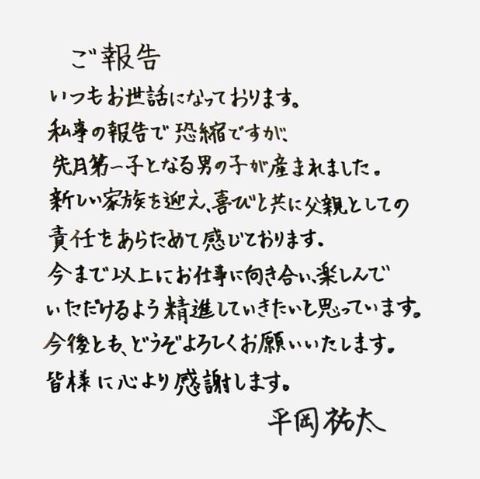 ご報告
いつもお世話になっております。
私事の報告で恐縮ですが、
先月第一子となる男の子が産まれました。
新しい家族を迎え、喜びと共に父親としての
責任をあらためて感じております。
今まで以上にお仕事に向き合い、楽しんで
いただけるよう精進していきたいと思っています。
今後とも、どうぞよろしくお願いいたします。
皆様に心より感謝します。
平岡祐太